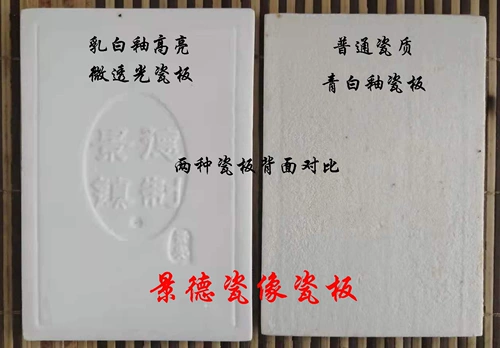 乳白釉高亮
微透光瓷板
普通瓷质
青白釉瓷板
景德
镇制
两种瓷板背面对比
景德瓷像瓷板